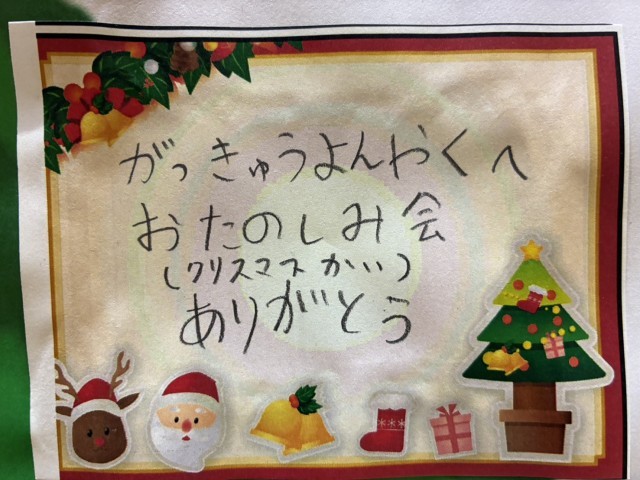 がっきゅうよんやくへ
おたのしみ会
(クリスマスかい)
ありがとう